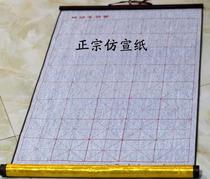 正宗仿宣纸